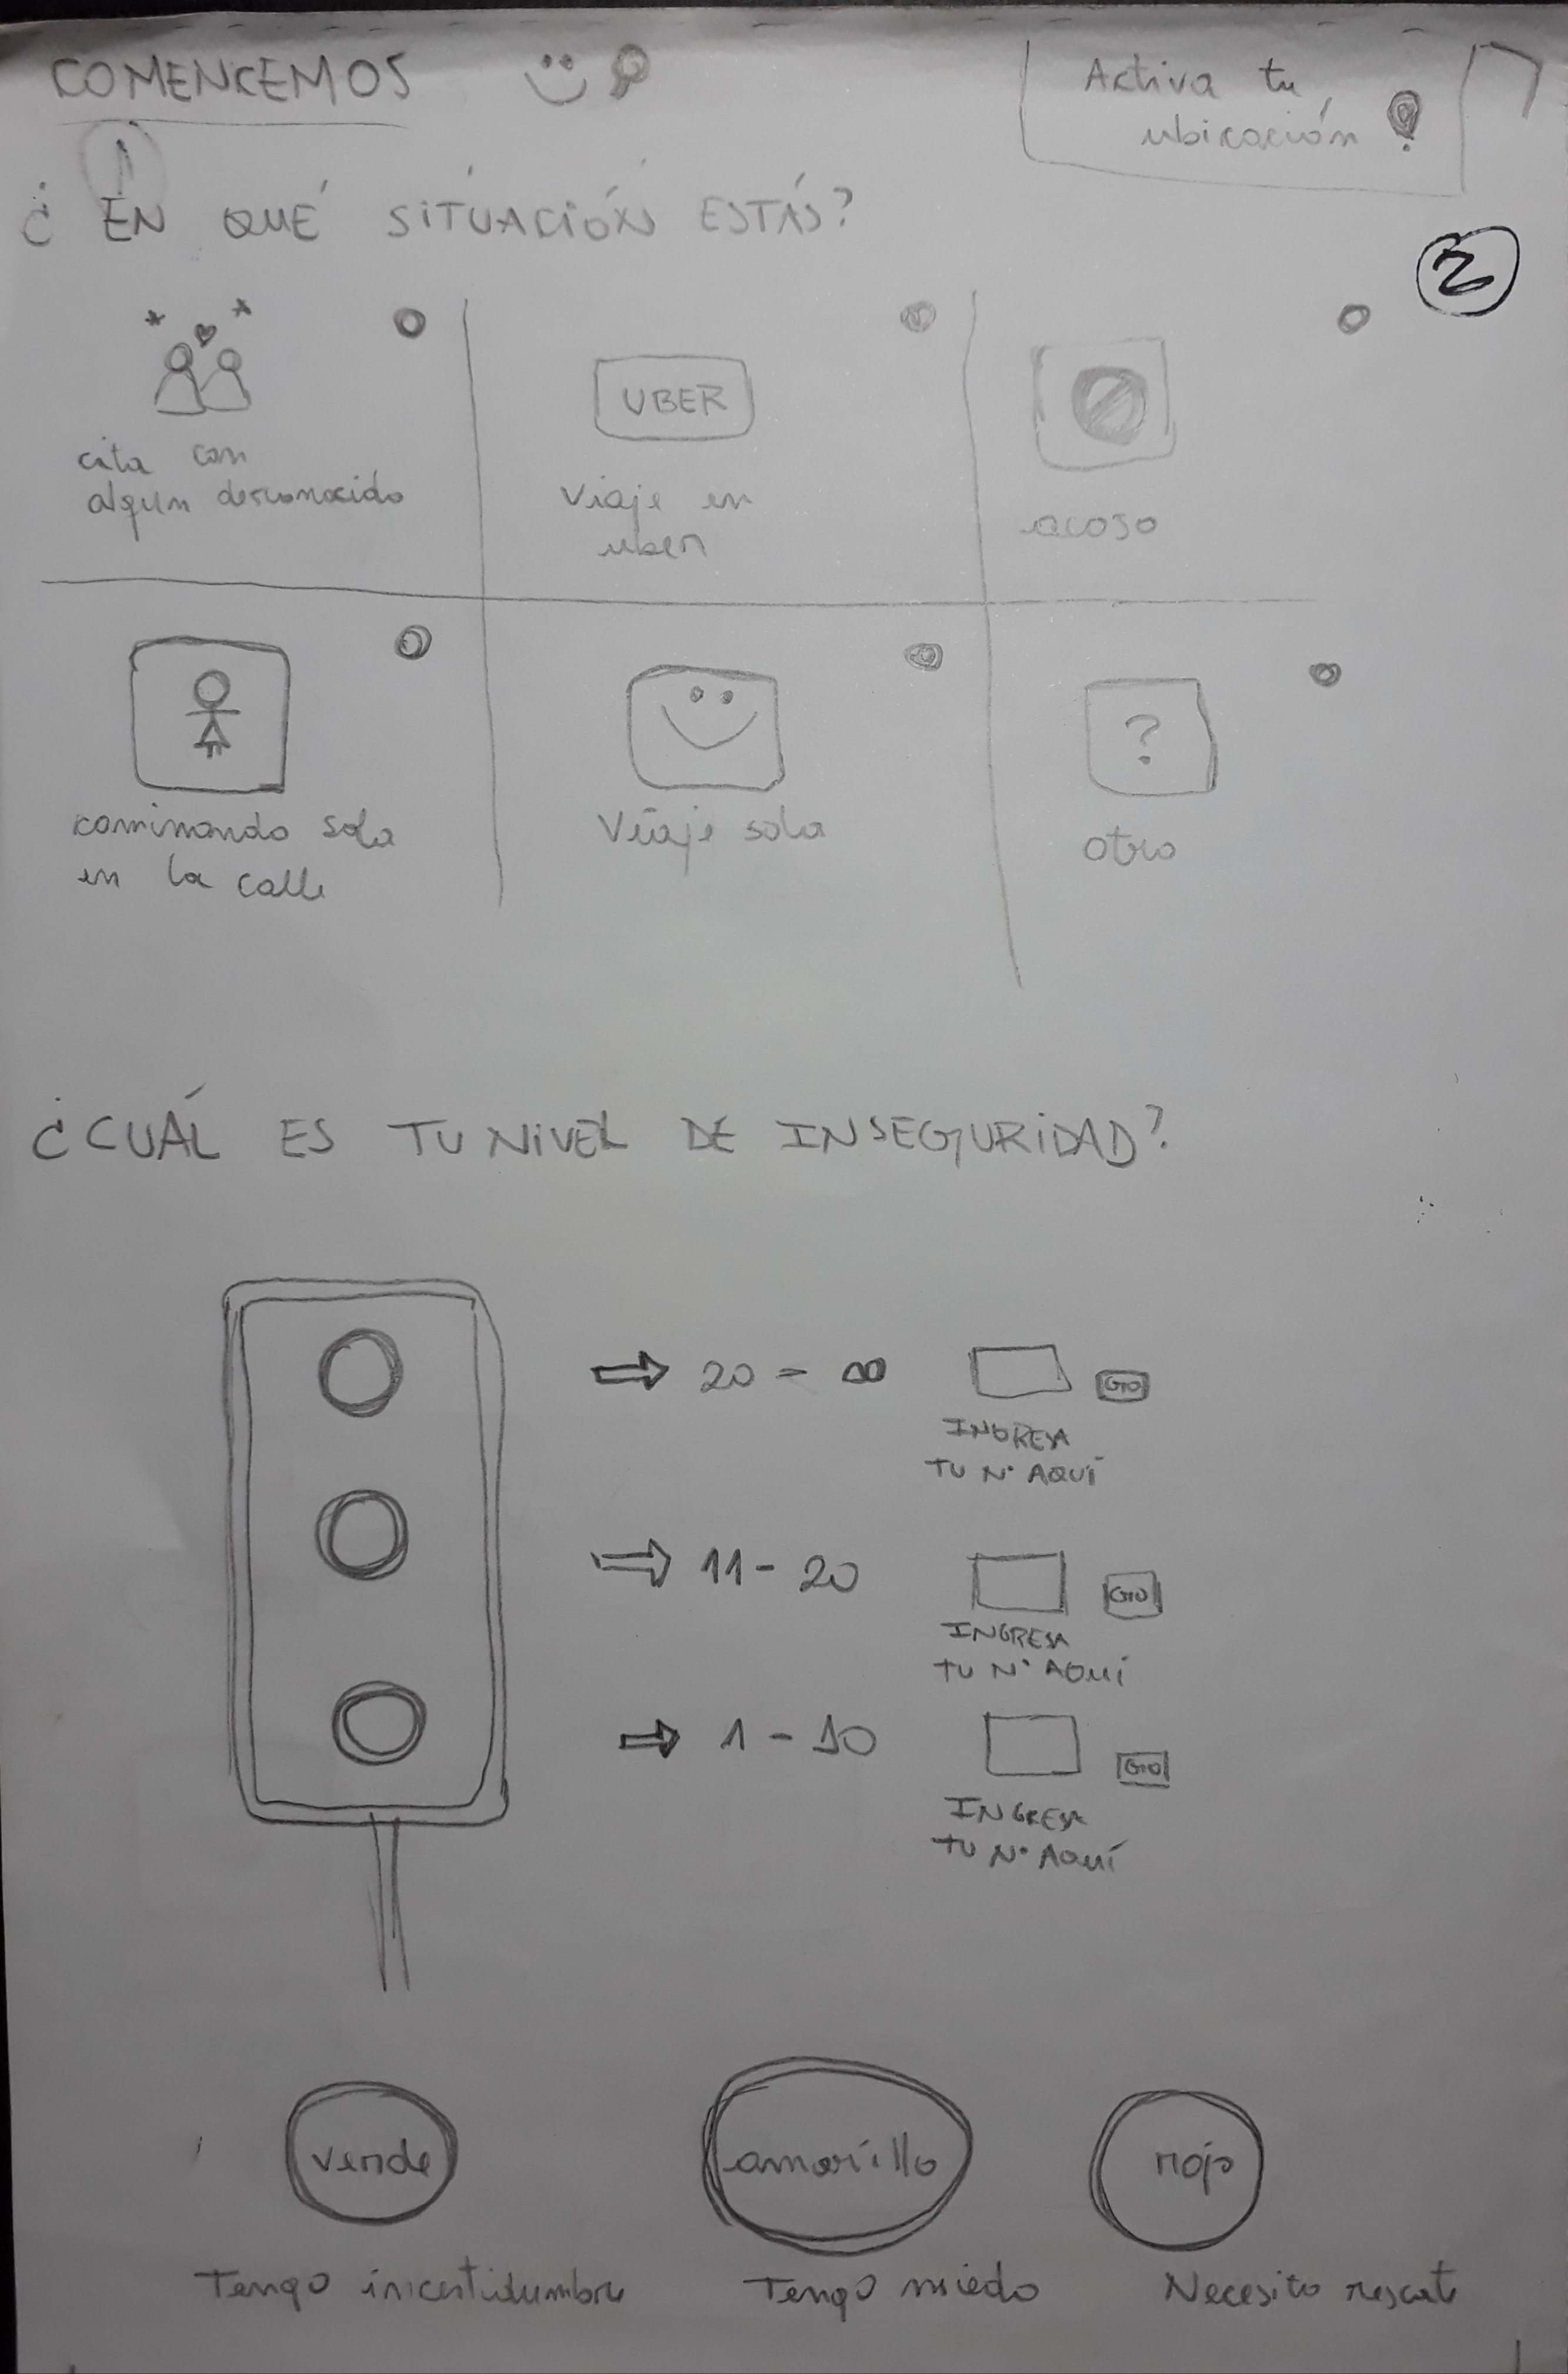 COMENCEMOS
Activa tu
ubicación
¿EN QUÉ SITUACIÓN ESTÁS?
2
cita con
algun desconocido
UBER
Viaje en
uber
acoso
caminando sola
en la calle
Viaje sola
?
otro
¿CUÁL ES TU NIVEL DE INSEGURIDAD?
⇒ 20 - ∞
GO
INGRESA
TU N° AQUÍ
⇒ 11 - 20
GO
INGRESA
TU N° AQUÍ
⇒ 1 - 10
GO
INGRESA
TU N° AQUÍ
verde
amarillo
rojo
Tengo incertidumbre
Tengo miedo
Necesito rescate